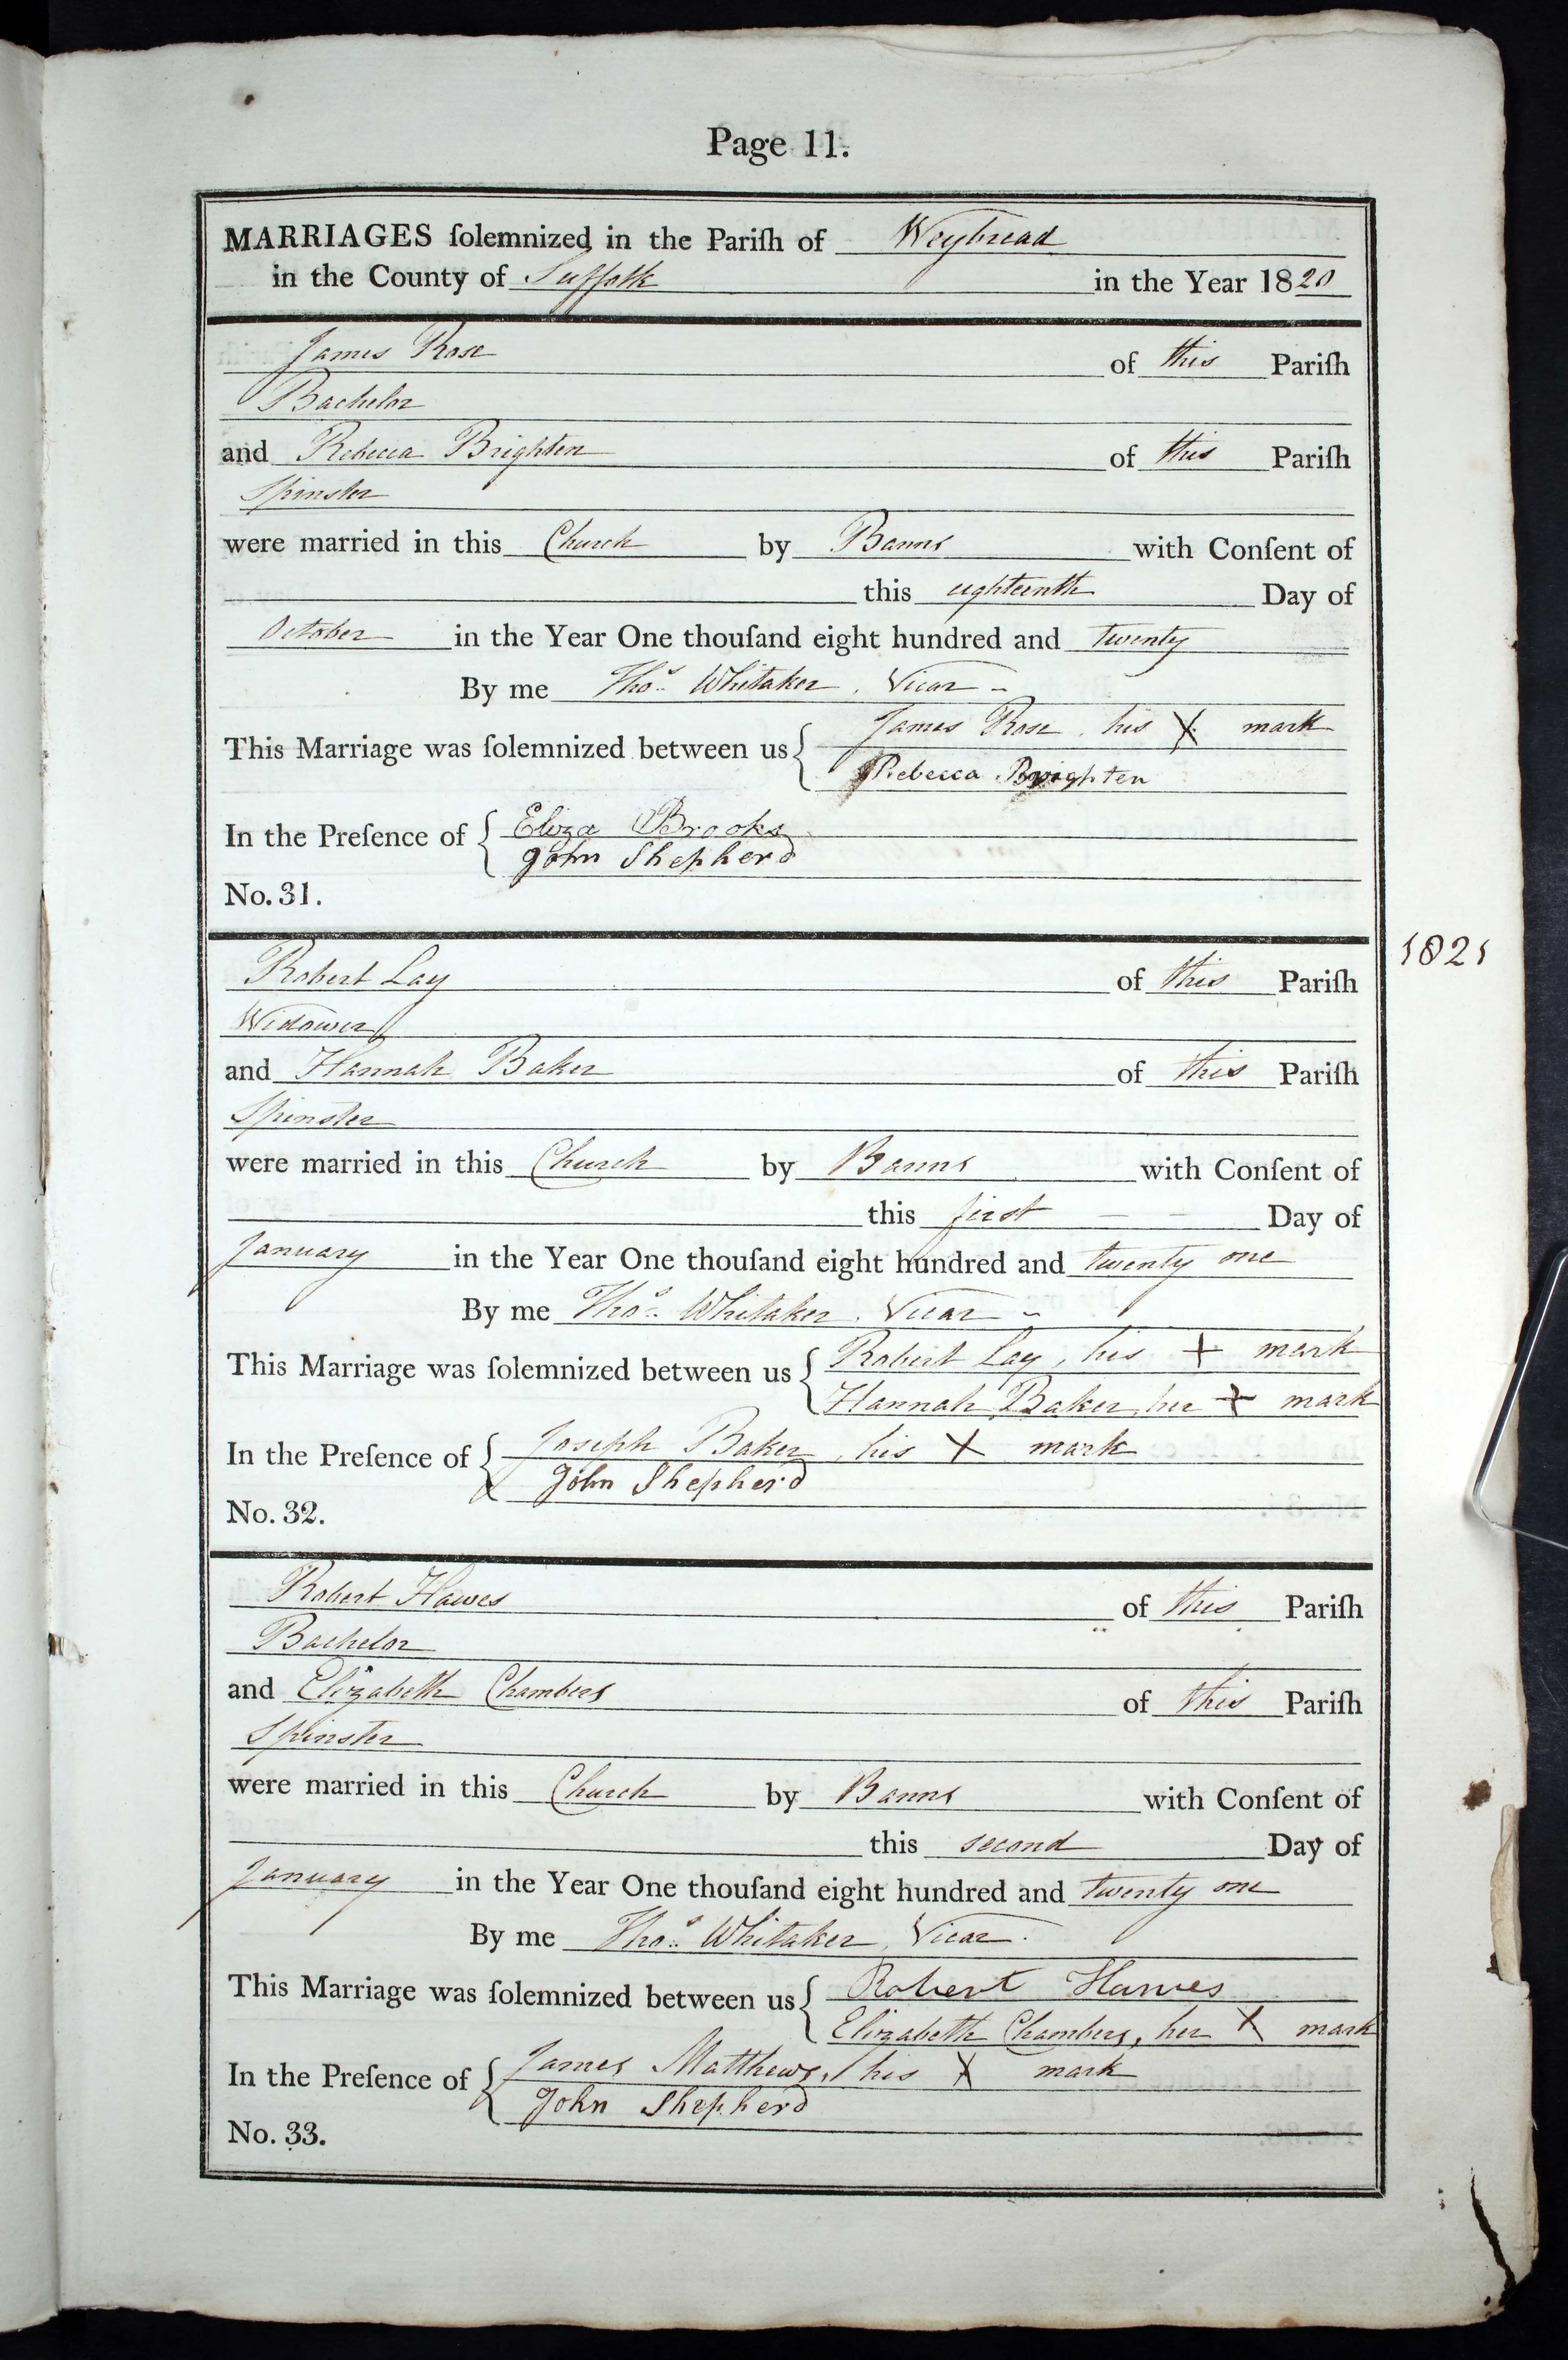 Page 11.
MARRIAGES ſolemnized in the Pariſh of Weybread
in the County of Suffolk in the Year 1820
James Rose of this Pariſh
Bachelor
and Rebecca Brighten of this Pariſh
Spinster
were married in this Church by Banns with Conſent of
this eighteenth Day of
October in the Year One thouſand eight hundred and twenty
By me Thos. Whitaker, Vicar
This Marriage was ſolemnized between us { James Rose, his X mark
Rebecca Brighten
In the Preſence of { Eliza Brooks
John Shepherd
No. 31.
1821
Robert Lay of this Pariſh
Widower
and Hannah Baker of this Pariſh
Spinster
were married in this Church by Banns with Conſent of
this first Day of
January in the Year One thouſand eight hundred and twenty one
By me Thos. Whitaker, Vicar
This Marriage was ſolemnized between us { Robert Lay, his + mark
Hannah Baker, her + mark
In the Preſence of { Joseph Baker, his X mark
John Shepherd
No. 32.
Robert Hawes of this Pariſh
Bachelor
and Elizabeth Chambers of this Pariſh
Spinster
were married in this Church by Banns with Conſent of
this second Day of
January in the Year One thouſand eight hundred and twenty one
By me Thos. Whitaker, Vicar.
This Marriage was ſolemnized between us { Robert Hawes
Elizabeth Chambers, her X mark
In the Preſence of { James Matthews, his X mark
John Shepherd
No. 33.